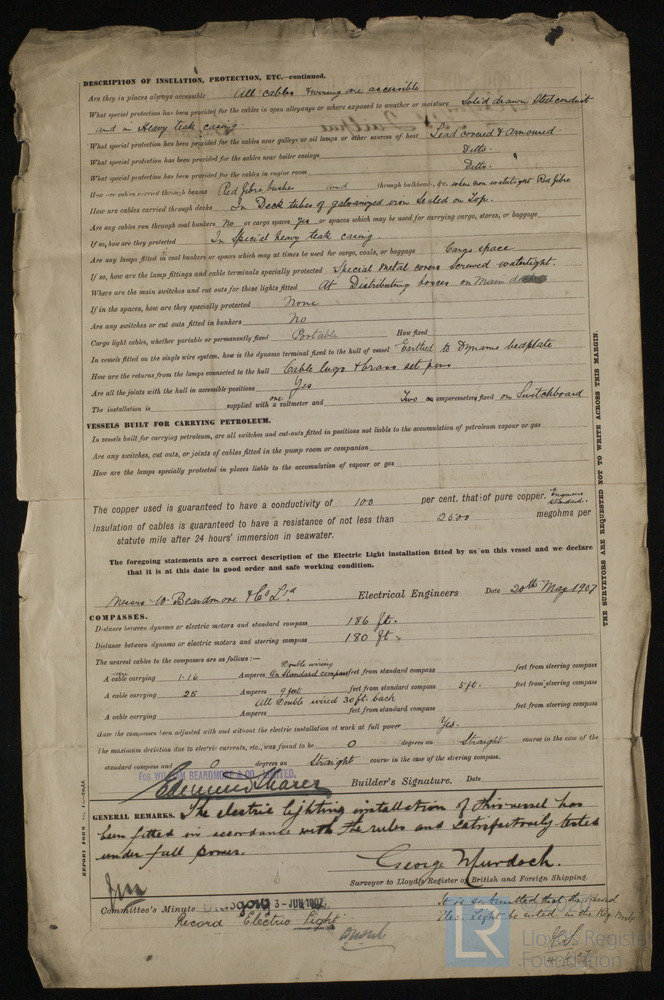 DESCRIPTION OF INSULATION, PROTECTION, ETC.—continued.
Are they in places always accessible All cables & wiring are accessible
What special protection has been provided for the cables in open alleyways or where exposed to weather or moisture Solid drawn steel conduit
and in Heavy teak casing
What special protection has been provided for the cables near galleys or oil lamps or other sources of heat Lead covered & armoured.
What special protection has been provided for the cables near boiler casings Ditto.
What special protection has been provided for the cables in engine room Ditto.
How are cables carried through beams Red fibre bushes and through bulkheads, &c. where non watertight Red fibre
How are cables carried through decks In Deck tubes of galvanized iron sealed on Top.
Are any cables run through coal bunkers No or cargo spaces Yes or spaces which may be used for carrying cargo, stores, or baggage
If so, how are they protected In Special heavy teak casing.
Are any lamps fitted in coal bunkers or spaces which may at times be used for cargo, coals, or baggage Cargo space
If so, how are the lamp fittings and cable terminals specially protected Special metal covers screwed watertight.
Where are the main switches and cut outs for these lights fitted At Distributing boxes on Main
If in the spaces, how are they specially protected None
Are any switches or cut outs fitted in bunkers No
Cargo light cables, whether portable or permanently fixed Portable How fixed
In vessels fitted on the single wire system, how is the dynamo terminal fixed to the hull of vessel Earthed to Dynamo bedplate
How are the returns from the lamps connected to the hull Cable lugs & brass set pins
Are all the joints with the hull in accessible positions Yes
The installation is supplied with one voltmeter and Two amperemeters fixed on Switchboard
VESSELS BUILT FOR CARRYING PETROLEUM.
In vessels built for carrying petroleum, are all switches and cut-outs fitted in positions not liable to the accumulation of petroleum vapour or gas
Are any switches, cut outs, or joints of cables fitted in the pump room or companion
How are the lamps specially protected in places liable to the accumulation of vapour or gas
The copper used is guaranteed to have a conductivity of 100 per cent. that of pure copper. Engineers Standard.
Insulation of cables is guaranteed to have a resistance of not less than 2500 megohms per
statute mile after 24 hours' immersion in seawater.
The foregoing statements are a correct description of the Electric Light installation fitted by us on this vessel and we declare
that it is at this date in good order and safe working condition.
Messrs W Beardmore & Co Ltd Electrical Engineers Date 20th May 1907
COMPASSES.
Distance between dynamo or electric motors and standard compass 186 ft.
Distance between dynamo or electric motors and steering compass 180 ft.
The nearest cables to the compasses are as follows:—
Double wiring
A cable carrying 1.16 Amperes On Standard compass feet from standard compass feet from steering compass
A cable carrying 25 Amperes 9 feet feet from standard compass 5 ft. feet from steering compass
All Double wired 30 ft. back
A cable carrying Amperes feet from standard compass feet from steering compass
Have the compasses been adjusted with and without the electric installation at work at full power Yes.
The maximum deviation due to electric currents, etc., was found to be 0 degrees on Straight course in the case of the
standard compass and 0 degrees on Straight course in the case of the steering compass.
FOR WILLIAM BEARDMORE & CO. LIMITED.
Builder's Signature. Date
GENERAL REMARKS. The electric lighting installation of this vessel has
been fitted in accordance with the rules and satisfactorily tested
under full power.
George Murdoch.
Surveyor to Lloyd's Register of British and Foreign Shipping.
Committee's Minute Glasgow 3-JUN 1907
Record Electric Light
It is submitted that the Record
Elec. Light be noted in the Reg. Book
THE SURVEYORS ARE REQUESTED NOT TO WRITE ACROSS THIS MARGIN.
REPORT FORM
LR Lloyd's Register
Foundation